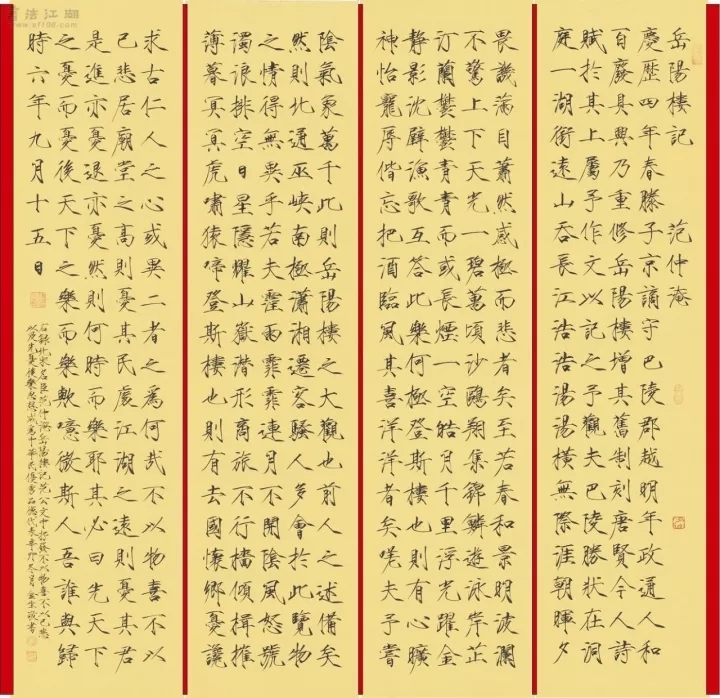 岳陽樓記 范仲淹
慶歷四年春滕子京謫守巴陵郡越明年政通人和
百廢具興乃重修岳陽樓增其舊制刻唐賢今人詩
賦於其上屬予作文以記之予觀夫巴陵勝狀在洞
庭一湖銜遠山吞長江浩浩湯湯橫無際涯朝暉夕
畏譏滿目蕭然感極而悲者矣至若春和景明波瀾
不驚上下天光一碧萬頃沙鷗翔集錦鱗遊泳岸芷
汀蘭鬱鬱青青而或長煙一空皓月千里浮光躍金
靜影沈璧漁歌互答此樂何極登斯樓也則有心曠
神怡寵辱偕忘把酒臨風其喜洋洋者矣嗟夫予嘗
陰氣象萬千此則岳陽樓之大觀也前人之述備矣
然則北通巫峽南極瀟湘遷客騷人多會於此覽物
之情得無異乎若夫霪雨霏霏連月不開陰風怒號
濁浪排空日星隱耀山嶽潛形商旅不行檣傾楫摧
薄暮冥冥虎嘯猿啼登斯樓也則有去國懷鄉憂讒
求古仁人之心或異二者之為何哉不以物喜不以
己悲居廟堂之高則憂其民處江湖之遠則憂其君
是進亦憂退亦憂然則何時而樂耶其必曰先天下
之憂而憂後天下之樂而樂歟噫微斯人吾誰與歸
時六年九月十五日
右錄北宋名臣范仲淹岳陽樓記范公文中抒發不以物喜不以己悲
以及先憂後樂思想成為中華民優秀品德代表辛卯冬月金生敬書
書法江湖